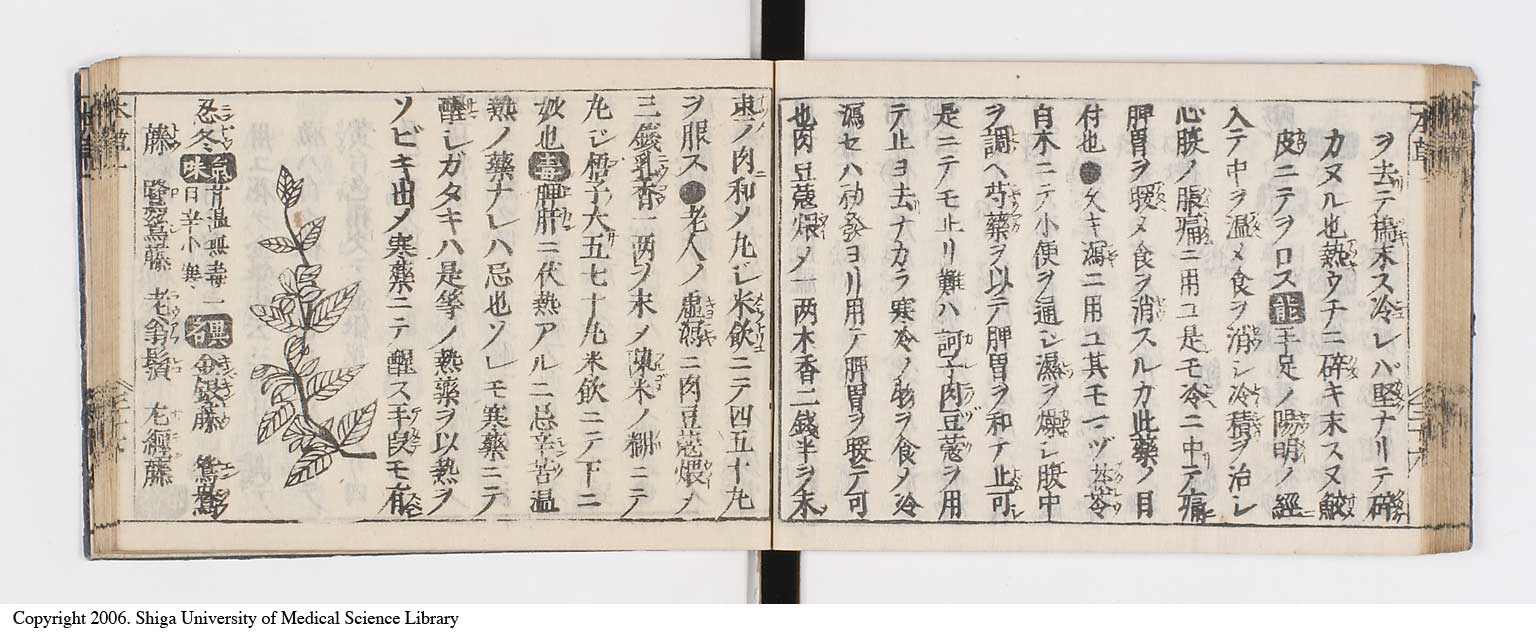 ヲ去テ搗末ス冷レハ堅ナリテ碎
カヌル也熱ウチニ碎キ末スヌ鮫
皮ニテヲロス能手足ノ陽明ノ經
入テ中ヲ温メ食ヲ消シ冷積ヲ治シ
心腹ノ脹痛ニ用ユ是モ冷ニ中テ痛
脾胃ヲ暖メ食ヲ消スルカ此藥ノ目
付也●久キ瀉ニ用ユ其モ一ヅ茯苓
白木ニテ小便ヲ通シ濕ヲ燥シ腹中
ヲ調ヘ芍藥ヲ以テ脾胃ヲ和テ止可
是ニテモ止リ難ハ訶子肉豆蔻ヲ用
テ止ヨ去ナカラ寒冷ノ物ヲ食メ冷
瀉セハ初發ヨリ用テ脾胃ヲ暖テ可
也肉豆蔻煨メ一両木香二錢半ヲ末
棗ノ肉和メ丸シ米飲ニテ四五十丸
ヲ服ス●老人ノ虚瀉ニ肉豆蔻煨メ
三錢乳香一両ヲ末メ陳米ノ糊ニテ
丸シ梧子大五七十丸米飲ニテ下ニ
妙也毒脾肝ニ伏熱アルニ忌辛苦温
熱ノ藥ナレハ忌也ソレモ寒藥ニテ
醒シガタキハ是等ノ熱藥ヲ以熱ヲ
ソビキ出メ寒藥ニテ醒ス手段モ有
忍冬 氣味 甘温無毒一曰辛小寒 異名 金銀藤 鴛鴦
藤 鷺鷥藤 老翁鬚 左纒藤
Copyright 2006. Shiga University of Medical Science Library